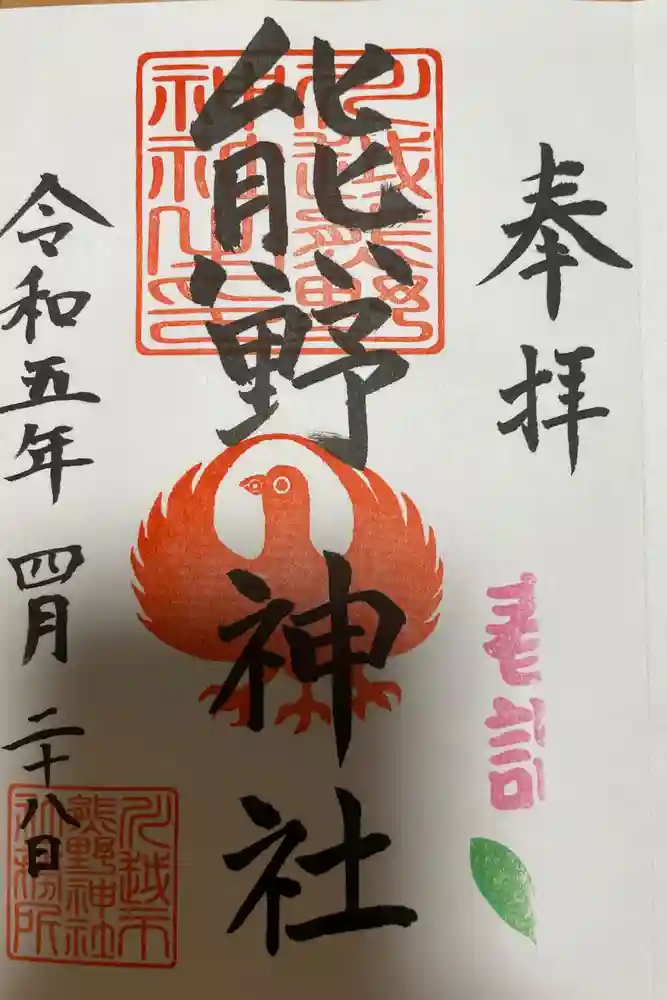 奉拝
春詣
川越熊野
神社之印
熊野神社
令和五年四月二十八日
川越市
熊野神社
社務所